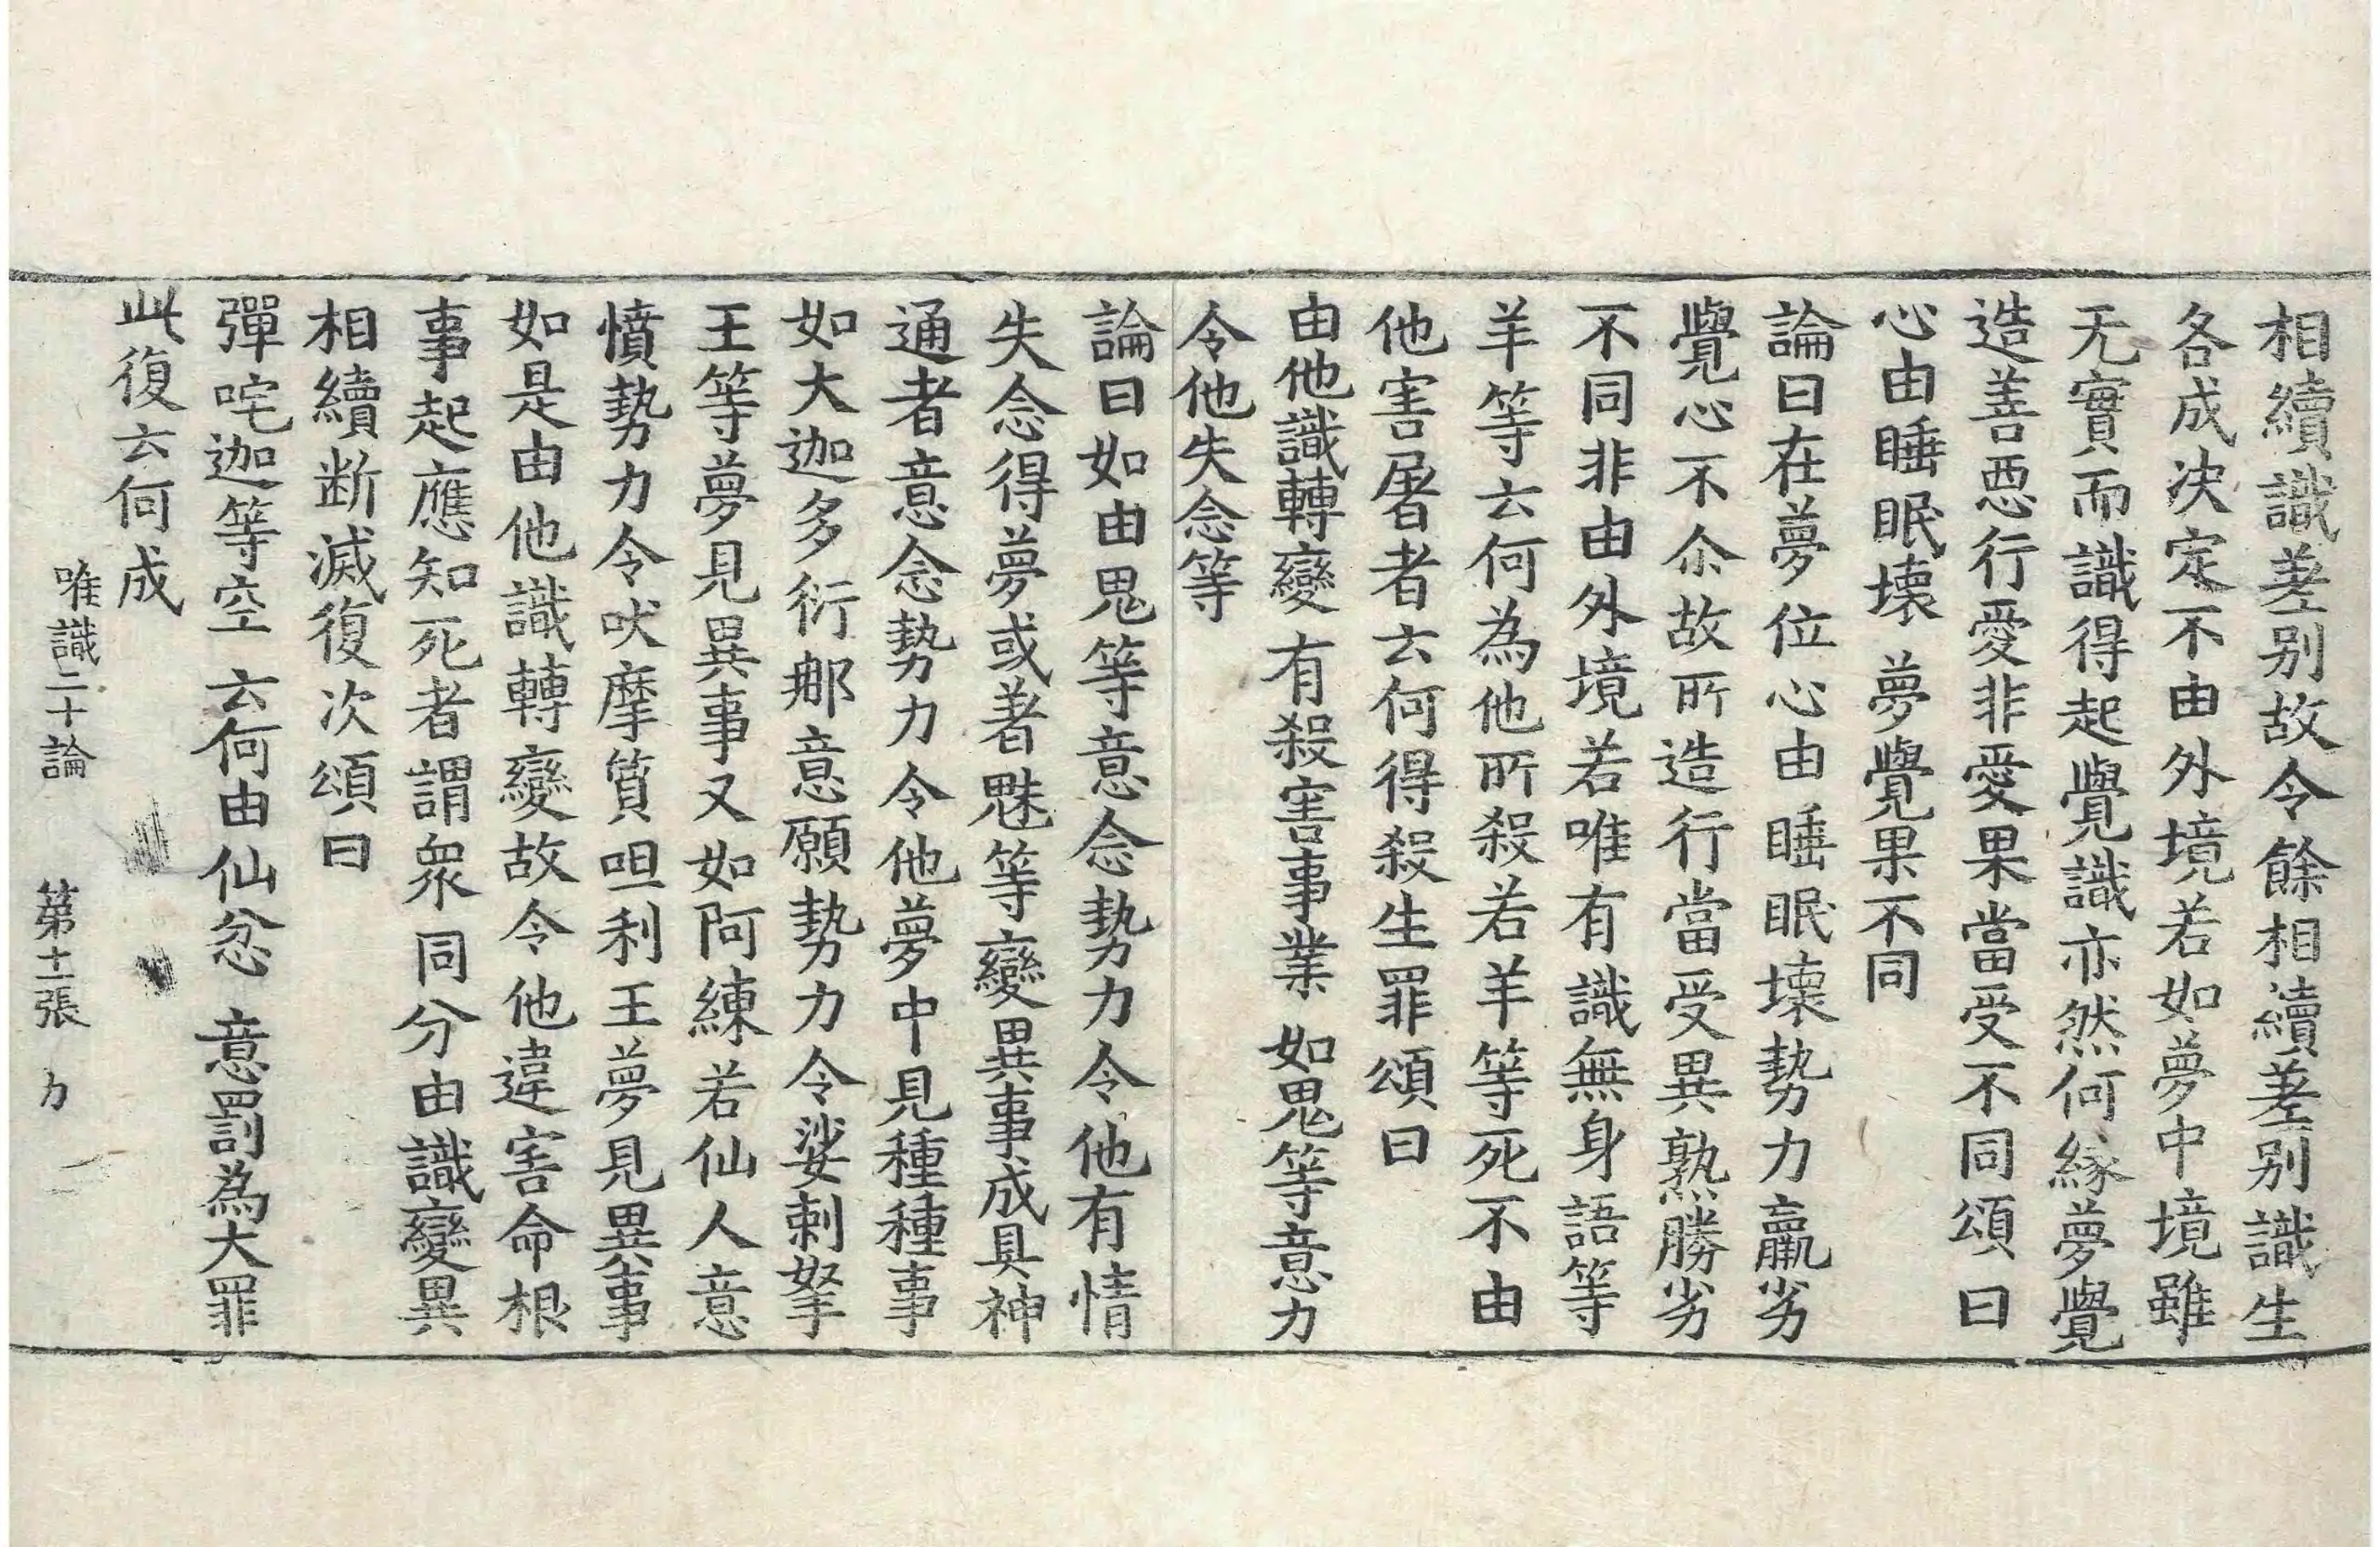 相續識差别故令餘相續差别識生
各成決定不由外境若如夢中境雖
无實而識得起覺識亦然何緣夢覺
造善惡行愛非愛果當受不同頌曰
心由睡眠壞 夢覺果不同
論曰在夢位心由睡眠壞勢力羸劣
覺心不尒故所造行當受異熟勝劣
不同非由外境若唯有識無身語等
羊等云何為他所殺若羊等死不由
他害屠者云何得殺生罪頌曰
由他識轉變 有殺害事業 如鬼等意力
令他失念等
論曰如由鬼等意念勢力令他有情
失念得夢或著魅等變異事成具神
通者意念勢力令他夢中見種種事
如大迦多衍那意願勢力令娑剌拏
王等夢見異事又如阿練若仙人意
憤勢力令吠摩質呾利王夢見異事
如是由他識轉變故令他違害命根
事起應知死者謂衆同分由識變異
相續斷滅復次頌曰
彈咤迦等空 云何由仙忿 意罰為大罪
此復云何成
唯識二十論 第十一張 力